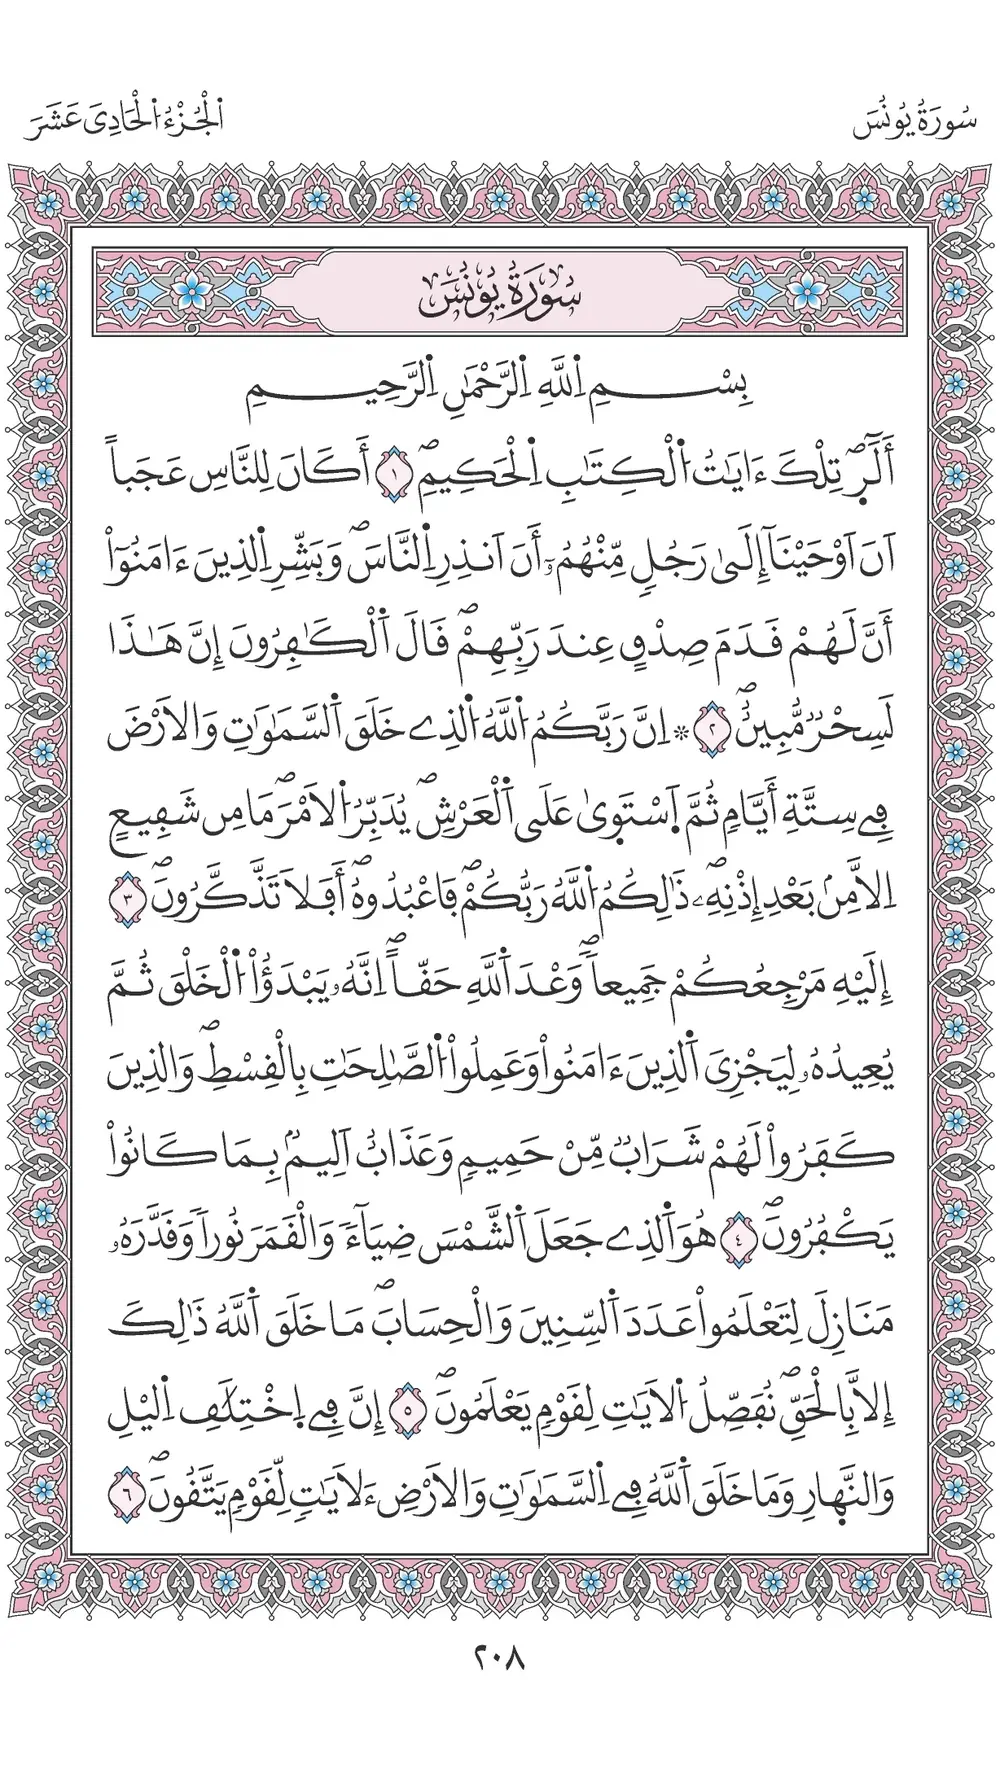 سُورَةُ يُونُسَ
اَ۬لْجُزْءُ اُ۬لْحَادِي عَشَرَ
سُورَةُ يُونُسَ
بِسْمِ اِ۬للَّهِ اِ۬لرَّحْمَٰنِ اِ۬لرَّحِيمِ
أَلَٓرۖ تِلْكَ ءَايَٰتُ اُ۬لْكِتَٰبِ اِ۬لْحَكِيمِۖ ١ أَكَانَ لِلنَّاسِ عَجَباً
اَنَ اَوْحَيْنَآ إِلَىٰ رَجُلٖ مِّنْهُمُۥٓ أَنَ اَنذِرِ اِ۬لنَّاسَۖ وَبَشِّرِ اِ۬لذِينَ ءَامَنُوٓاْ
أَنَّ لَهُمْ قَدَمَ صِدْقٍ عِندَ رَبِّهِمْۖ قَالَ اَ۬لْكَٰفِرُونَ إِنَّ هَٰذَا
لَسِحْرٞ مُّبِينٌۖ ٢ ۞ اِنَّ رَبَّكُمُ اُ۬للَّهُ اُ۬لذِے خَلَقَ اَ۬لسَّمَٰوَٰتِ وَالَارْضَ
فِے سِتَّةِ أَيَّامٖ ثُمَّ اَ۪سْتَوىٰ عَلَى اَ۬لْعَرْشِۖ يُدَبِّرُ اُ۬لَامْرَۖ مَا مِن شَفِيعٍ
اِلَّا مِنۢ بَعْدِ إِذْنِهِۦۖ ذَٰلِكُمُ اُ۬للَّهُ رَبُّكُمْۖ فَاعْبُدُوهُۖ أَفَلَا تَذَّكَّرُونَۖ ٣
إِلَيْهِ مَرْجِعُكُمْ جَمِيعاٗۖ وَعْدَ اَ۬للَّهِ حَقّاًۖ اِنَّهُۥ يَبْدَؤُاْ اُ۬لْخَلْقَ ثُمَّ
يُعِيدُهُۥ لِيَجْزِيَ اَ۬لذِينَ ءَامَنُواْ وَعَمِلُواْ اُ۬لصَّٰلِحَٰتِ بِالْقِسْطِۖ وَالذِينَ
كَفَرُواْ لَهُمْ شَرَابٞ مِّنْ حَمِيمٖ وَعَذَابٌ اَلِيمُۢ بِمَا كَانُواْ
يَكْفُرُونَۖ ٤ هُوَ اَ۬لذِے جَعَلَ اَ۬لشَّمْسَ ضِيَآءٗ وَالْقَمَرَ نُوراٗ وَقَدَّرَهُۥ
مَنَازِلَ لِتَعْلَمُواْ عَدَدَ اَ۬لسِّنِينَ وَالْحِسَابَۖ مَا خَلَقَ اَ۬للَّهُ ذَٰلِكَ
إِلَّا بِالْحَقِّۖ نُفَصِّلُ اُ۬لَايَٰتِ لِقَوْمٖ يَعْلَمُونَۖ ٥ إِنَّ فِے اِ۪خْتِلَٰفِ اِ۬ليْلِ
وَالنَّهارِ وَمَا خَلَقَ اَ۬للَّهُ فِے اِ۬لسَّمَٰوَٰتِ وَالَارْضِ ءَلَايَٰتٖ لِّقَوْمٖ يَتَّقُونَۖ ٦
٢٠٨